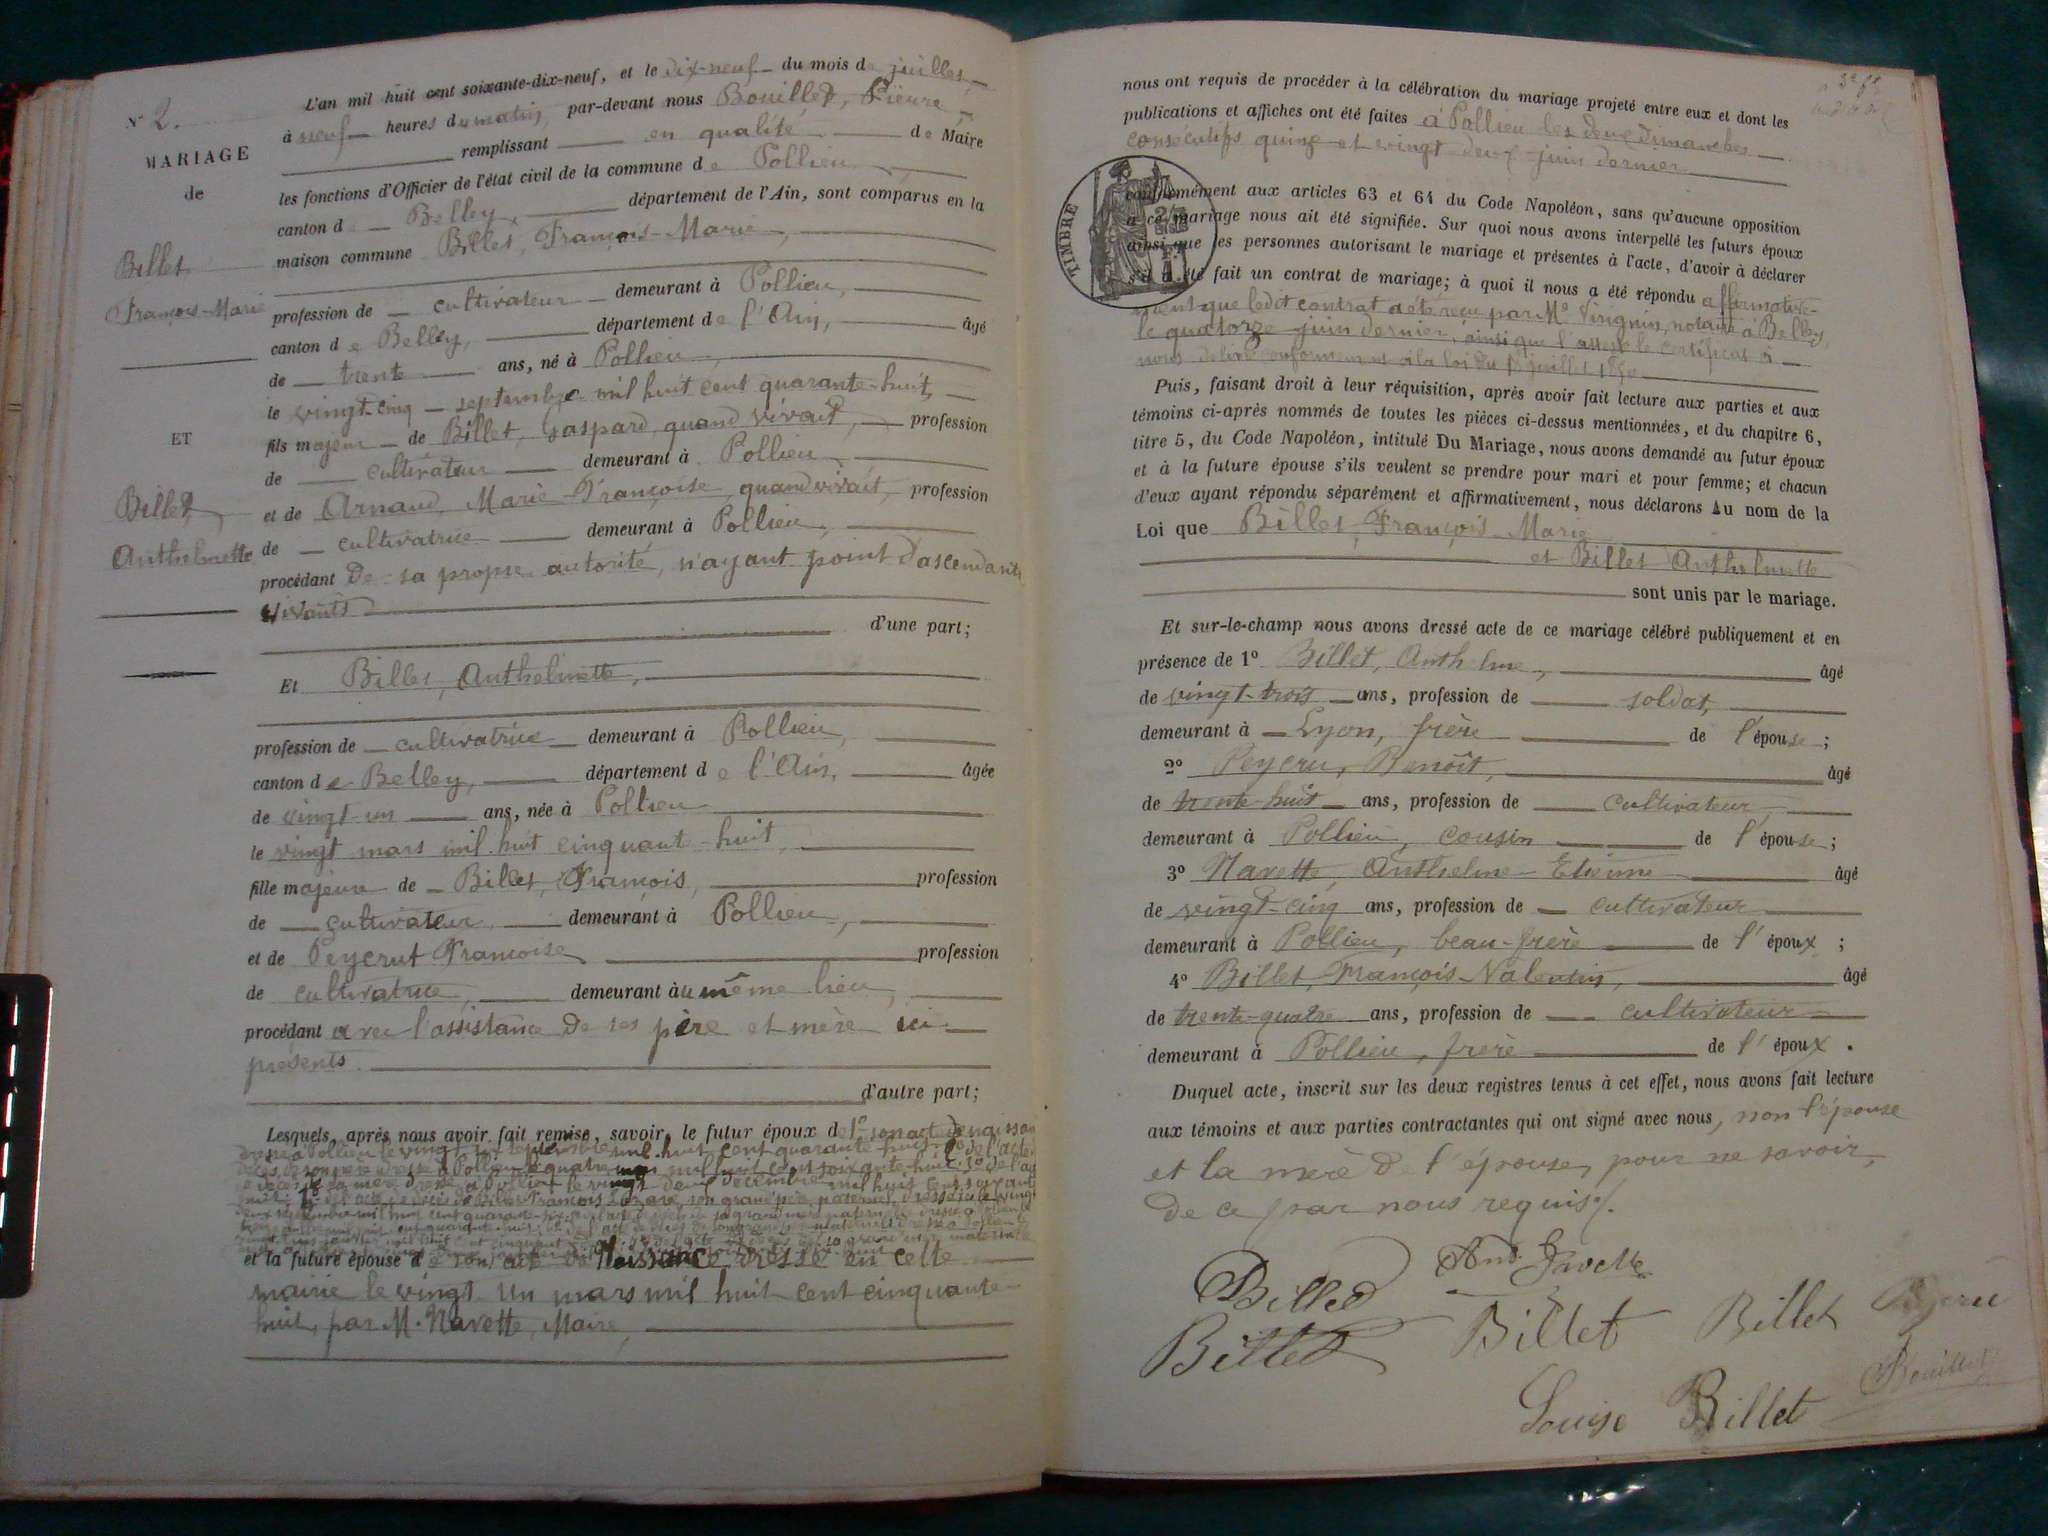 N° 2.
MARIAGE
de
Billet
François-Marie
ET
Billet
Anthelmette
L'an mil huit cent soixante-dix-neuf, et le dix-neuf du mois de juillet
à neuf heures du matin, par-devant nous Bouillet, Pierre
remplissant en qualité de Maire
les fonctions d'Officier de l'état civil de la commune de Pollieu
canton de Belley, département de l'Ain, sont comparus en la
maison commune Billet, François-Marie,
profession de cultivateur demeurant à Pollieu,
canton de Belley, département de l'Ain, âgé
de trente ans, né à Pollieu,
le vingt-cinq septembre mil huit cent quarante-huit,
fils majeur de Billet, Gaspard, quand vivait, profession
de cultivateur demeurant à Pollieu
et de Arnaud, Marie-Françoise, quand vivait, profession
de cultivatrice demeurant à Pollieu,
procédant de sa propre autorité, n'ayant point d'ascendants
vivants
d'une part;
Et Billet, Anthelmette,
profession de cultivatrice demeurant à Pollieu,
canton de Belley, département de l'Ain, âgée
de vingt-un ans, née à Pollieu
le vingt mars mil huit cinquante-huit,
fille majeure de Billet, François, profession
de cultivateur, demeurant à Pollieu,
et de Peycrut Françoise profession
de cultivatrice, demeurant au même lieu,
procédant avec l'assistance de ses père et mère ici
présents.
d'autre part;
Lesquels, après nous avoir fait remise, savoir, le futur époux de 1° son acte de naissan
dressé à Pollieu le vingt septembre mil huit cent quarante-huit; 2° de l'acte
décès de son père dressé à Pollieu le quatre mai mil huit cent soixante-huit; 3° de l'ac
de décès de sa mère dressé à Pollieu le vingt deux décembre mil huit cent soixante
huit; 4° de l'acte de décès de Billet François Lazare, son grand père paternel, dressé le vingt
et la future épouse de son acte de Naissance dressé en cette
mairie le vingt un mars mil huit cent cinquante-
huit, par M. Navette, Maire,
nous ont requis de procéder à la célébration du mariage projeté entre eux et dont les
publications et affiches ont été faites à Pollieu les deux Dimanches
consécutifs quinze et vingt deux juin dernier
conformément aux articles 63 et 64 du Code Napoléon, sans qu'aucune opposition
à ce mariage nous ait été signifiée. Sur quoi nous avons interpellé les futurs époux
ainsi que les personnes autorisant le mariage et présentes à l'acte, d'avoir à déclarer
s'il a été fait un contrat de mariage; à quoi il nous a été répondu affirmative-
ment que ledit contrat a été reçu par Me Vingnin, notaire à Belley,
le quatorze juin dernier, ainsi que l'atteste le certificat à
nous délivré conformément à la loi du juillet 1850
TIMBRE
Puis, faisant droit à leur réquisition, après avoir fait lecture aux parties et aux
témoins ci-après nommés de toutes les pièces ci-dessus mentionnées, et du chapitre 6,
titre 5, du Code Napoléon, intitulé Du Mariage, nous avons demandé au futur époux
et à la future épouse s'ils veulent se prendre pour mari et pour femme; et chacun
d'eux ayant répondu séparément et affirmativement, nous déclarons Au nom de la
Loi que Billet, François-Marie
et Billet Anthelmette
sont unis par le mariage.
Et sur-le-champ nous avons dressé acte de ce mariage célébré publiquement et en
présence de 1° Billet, Anthelme, âgé
de vingt-trois ans, profession de soldat,
demeurant à Lyon, frère de l'épouse;
2° Peycru, Benoît, âgé
de trente-huit ans, profession de cultivateur,
demeurant à Pollieu, cousin de l'épouse;
3° Navette, Anthelme-Etienne âgé
de vingt-cinq ans, profession de cultivateur
demeurant à Pollieu, beau-frère de l'époux;
4° Billet, François-Valentin, âgé
de trente-quatre ans, profession de cultivateur
demeurant à Pollieu, frère de l'époux.
Duquel acte, inscrit sur les deux registres tenus à cet effet, nous avons fait lecture
aux témoins et aux parties contractantes qui ont signé avec nous, non l'épouse
et la mère de l'épouse, pour ne savoir,
de ce par nous requis.
Billet Navette
Billet Billet Billet Peycru
Louise Billet Bouillet